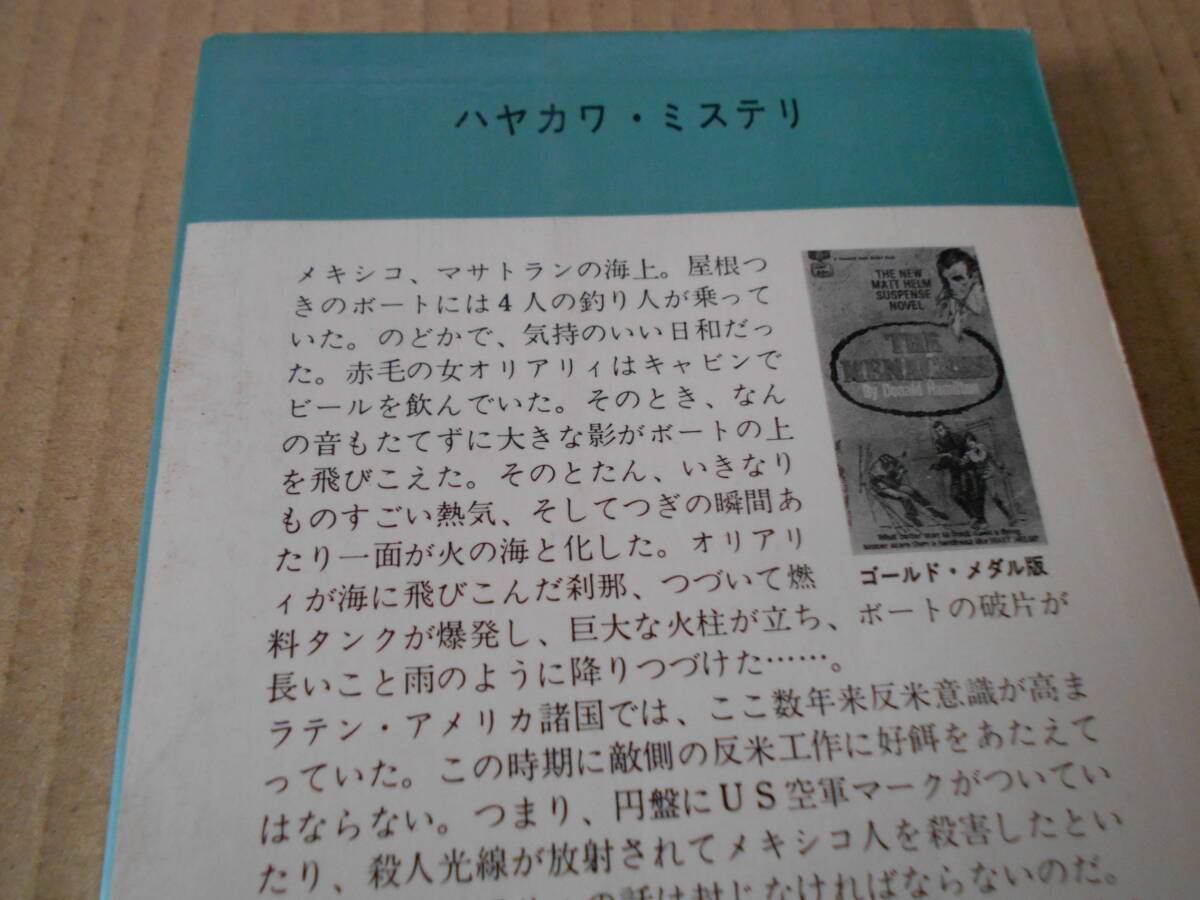 ハヤカワ・ミステリ
メキシコ、マサトランの海上。屋根つ
きのボートには4人の釣り人が乗って
いた。のどかで、気持のいい日和だっ
た。赤毛の女オリアリィはキャビンで
ビールを飲んでいた。そのとき、なん
の音もたてずに大きな影がボートの上
を飛びこえた。そのとたん、いきなり
ものすごい熱気、そしてつぎの瞬間あ
たり一面が火の海と化した。オリアリ
ィが海に飛びこんだ刹那、つづいて燃
料タンクが爆発し、巨大な火柱が立ち、ボートの破片が
長いこと雨のように降りつづけた……。
ラテン・アメリカ諸国では、ここ数年来反米意識が高ま
っていた。この時期に敵側の反米工作に好餌をあたえて
はならない。つまり、円盤にUS空軍マークがついてい
たり、殺人光線が放射されてメキシコ人を殺害したとい
の話は封じなければならないのだ。
THE NEW
MATT HELM
SUSPENSE
NOVEL
THE
By Donald Hamilton
ゴールド・メダル版